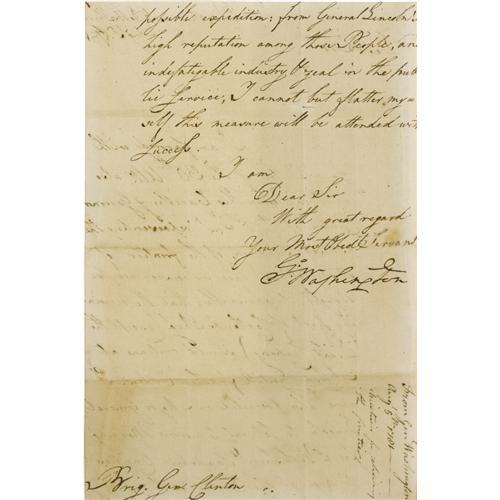 possible expedition: from General Lincoln's
high reputation among those People, and
indefatigable industry & zeal in the pub-
lic Service, I cannot but flatter my=
self this measure will be attended with
Success.
I am
Dear Sir
With great regard
Your Most Obedt Servant
Go Washington
Brig. Genl Clinton
From Genl Washington
Augt 5th 1781
the frontiers